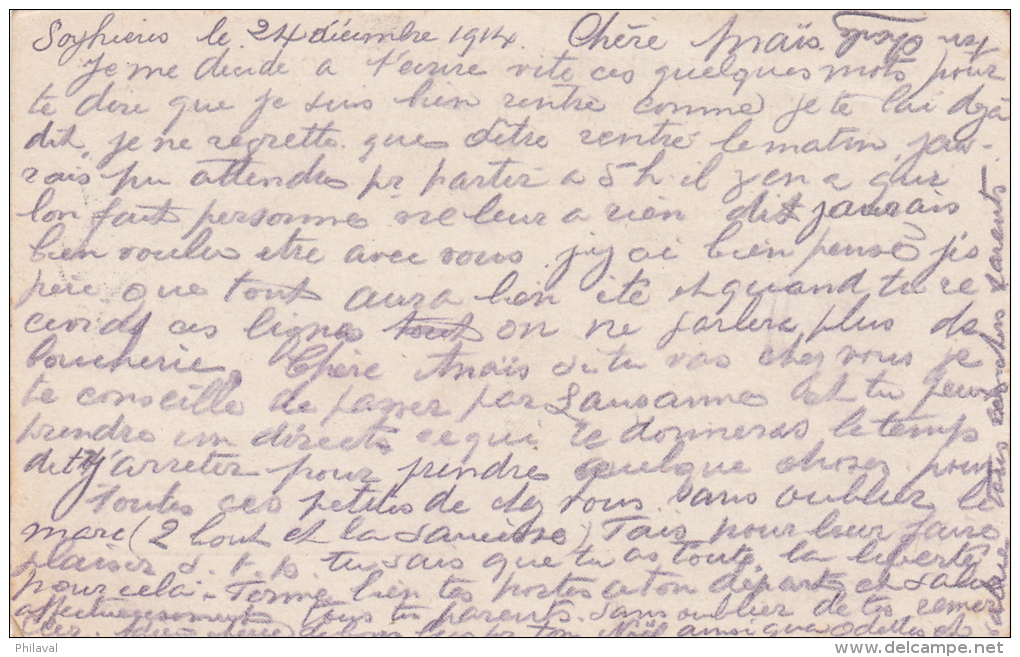 Soyhieres le 24 décembre 1914. Chère Anaïs
Je me décide a t'écrire vite ces quelques mots pour
te dire que je suis bien rentré comme je te lai déjà
dit, je ne regrette que dêtre rentré le matin, jau-
rais pu attendre pr partir a 5 h il y en a que
lon fait personne ne leur a rien dit jaurais
bien voulu etre avec vous j'y ai bien pensé j'es
père que tout aura bien été et quand tu re
cevras ces lignes tout on ne parlera plus de
boucherie. Chère Anaïs si tu vas chez vous je
te conseille de passer par Lausanne et tu peux
prendre un direct ce qui te donneras le temps
de t'y arreter pour prendre quelque chose pour
toutes ces petites de chez vous sans oublier le
marc (2 bout et la saucisse) Fais pour leur faire
plaisir s. t. p. tu sais que tu as toute la liberté
pour cela. Ferme bien tes portes a ton départ et salue
affectueusement tous tes parents. Sans oublier de les remer
cier. Adieu chère ton Noël ainsi qua Odette et